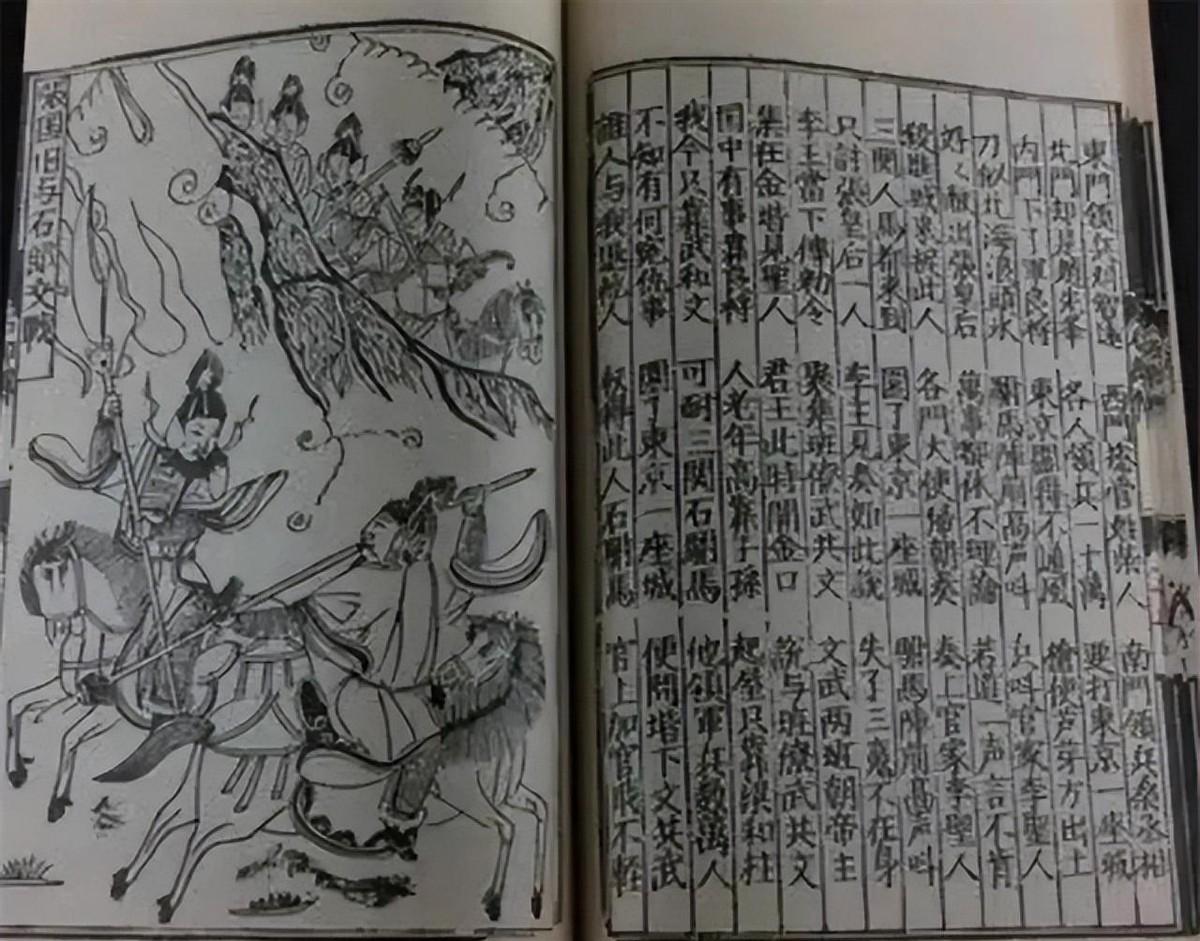 東門領兵刘智遠 西門官姓柴人 南門領兵桑丞相
北門却是先峯 各人領兵一十萬 要打東京一座城
内門下了軍良將 東文圍得不通風 槍似芦芽方出土
刀似北海浪氷 馬陣前高声叫 叫官家李聖人
好々献出張皇后 萬事都休不理論 若道一声言不肯
殺進捉此人 各門大使隨朝奏 奏上官家李聖人
三関人馬都来到 圍了東京一座城 駙馬陣前高声叫
只討張皇后一人 李王見奏如此説 失了三魂不在身
李王當下傳勅令 聚集班僚武共文 文武两班朝帝主
集在金堦見聖人 君王此時開金口 説与班僚武共文
国中有事尋良將 人老年高靠子孫 起屋只靠梁和柱
我今只靠武和文 可耐三関石駙馬 他領軍兵数萬人
不知有何冤仇事 圍了東京一座城 便問堦下文共武
誰人与我退賊人 捉得此人石駙馬 官上加官職不輕
国旧与石交戦